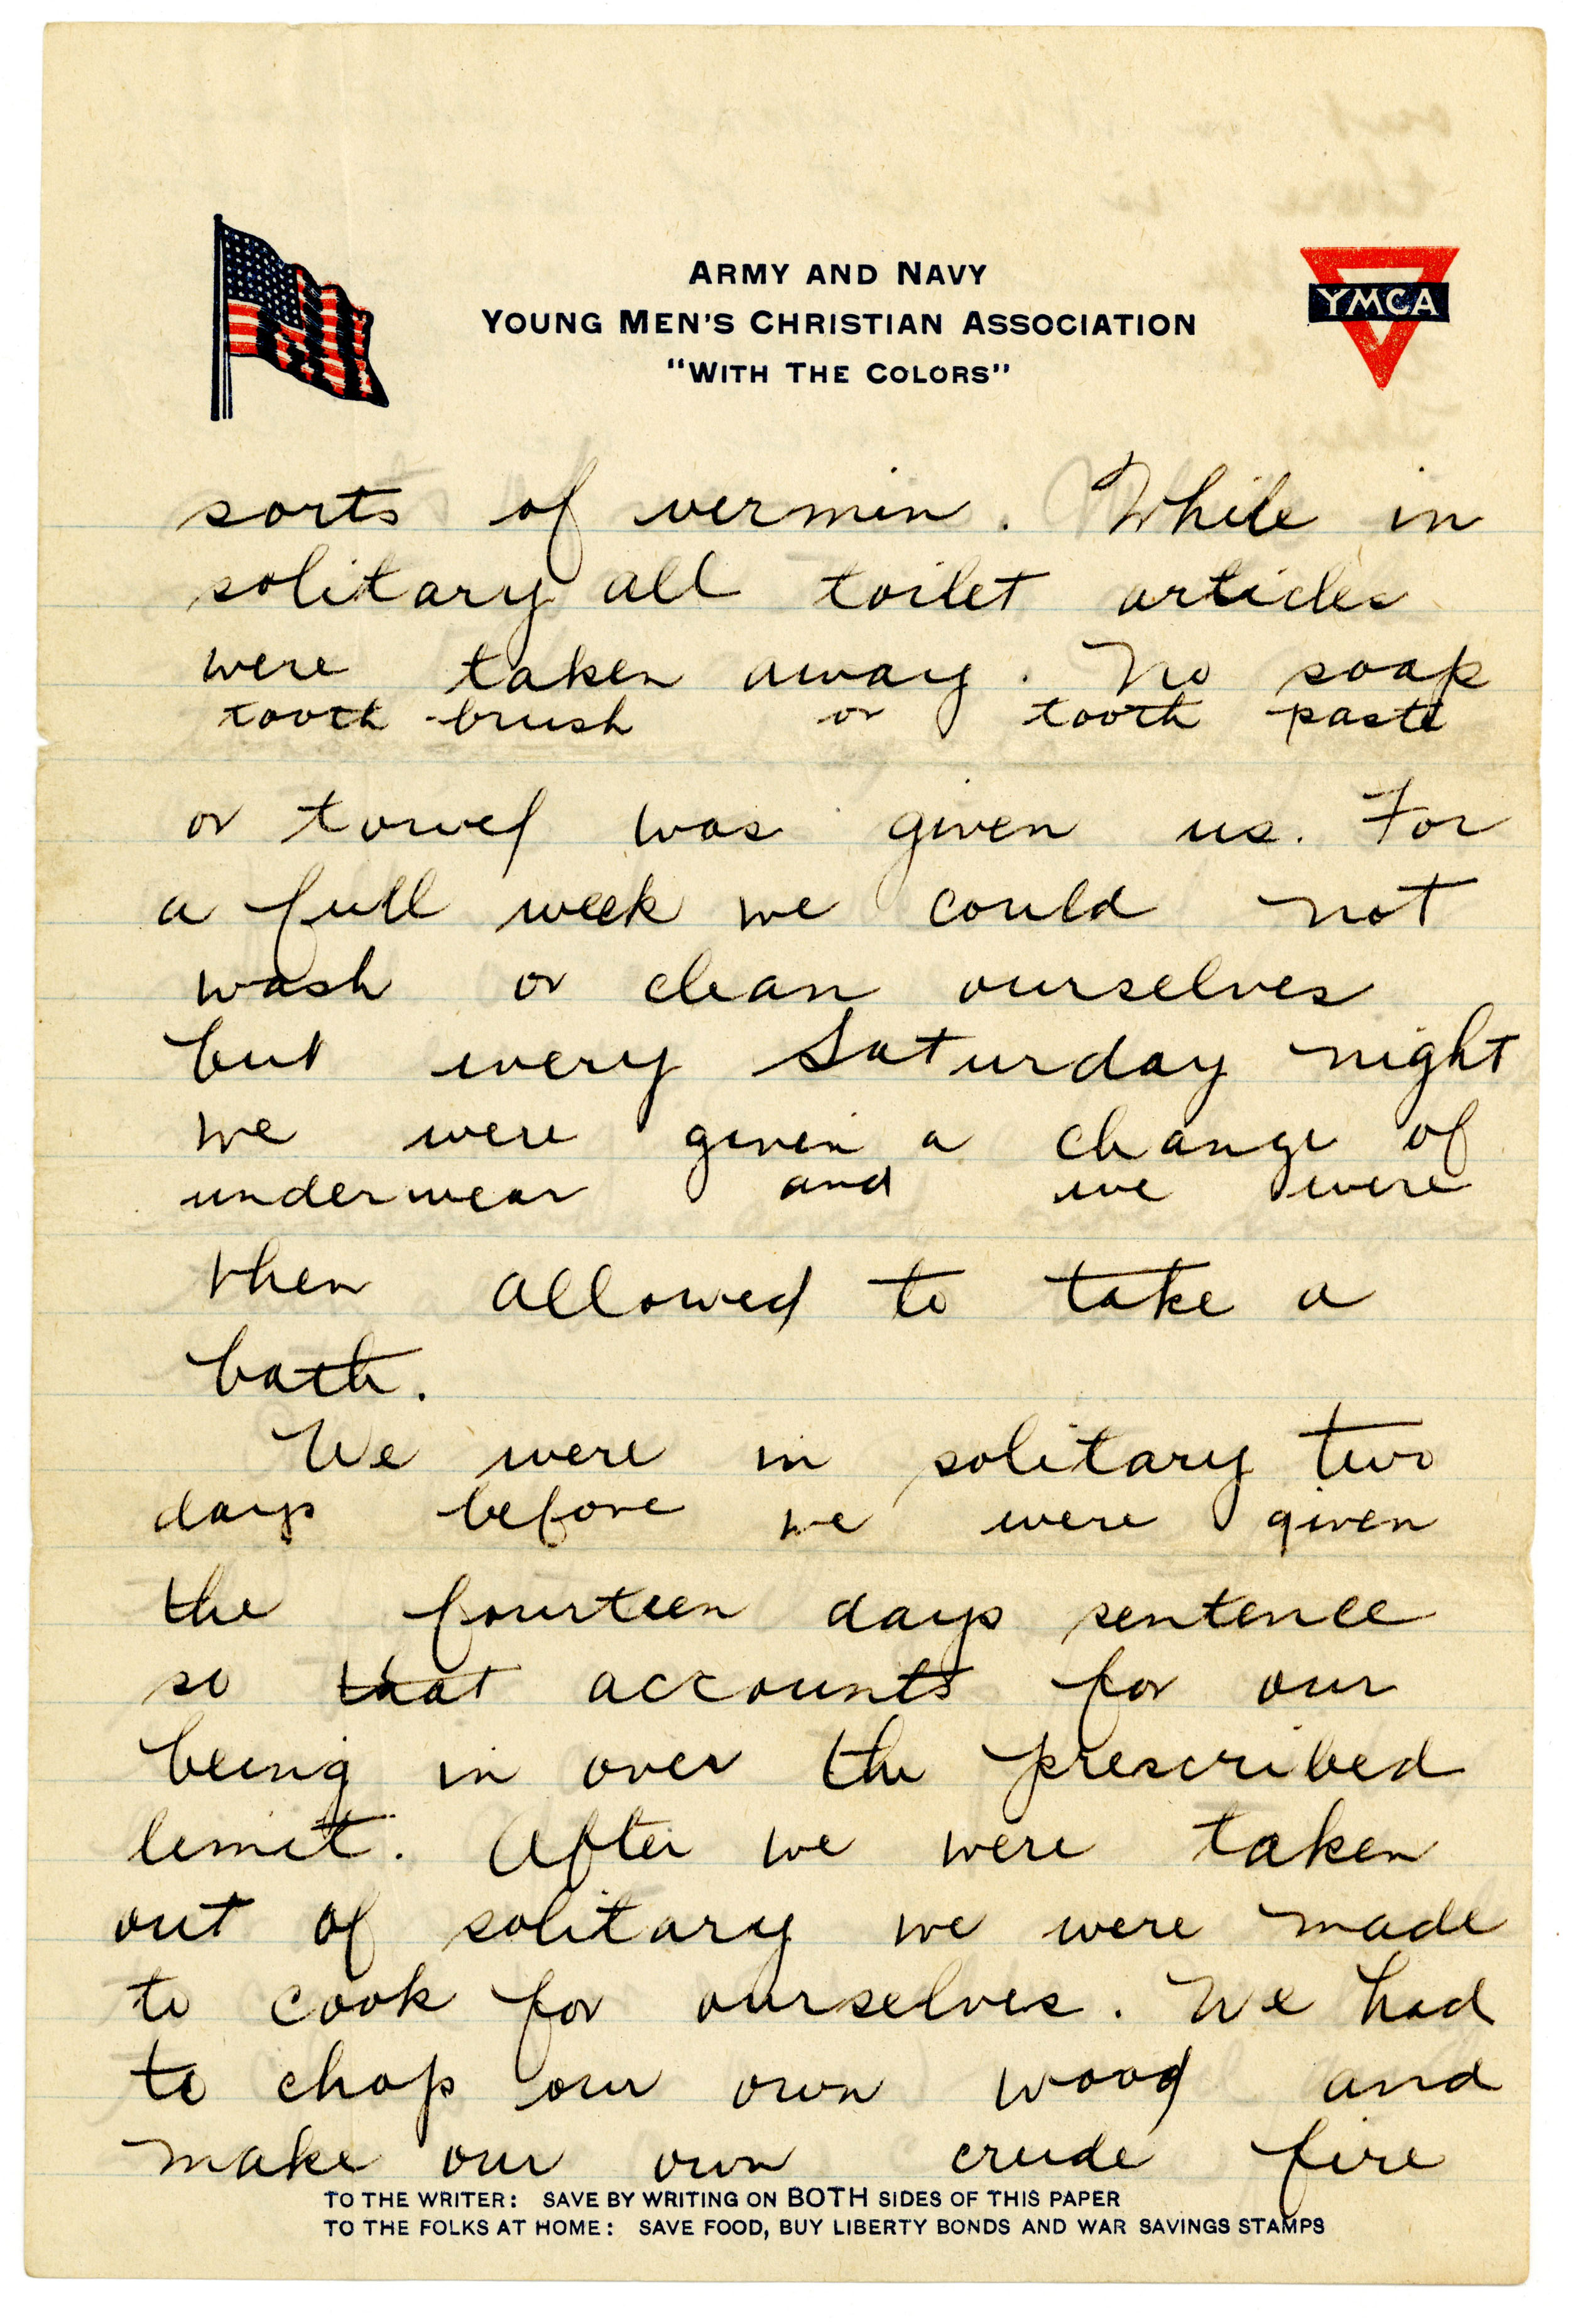 ARMY AND NAVY
YOUNG MEN'S CHRISTIAN ASSOCIATION
"WITH THE COLORS"
YMCA
sorts of vermin. While in
solitary all toilet articles
were taken away. No soap
tooth brush or tooth paste
or towel was given us. For
a full week we could not
wash or clean ourselves
but every Saturday night
we were given a change of
underwear and we were
then allowed to take a
bath.
We were in solitary two
days before we were given
the fourteen days sentence
so that accounts for our
being in over the prescribed
limit. After we were taken
out of solitary we were made
to cook for ourselves. We had
to chop our own wood and
make our own crude fire
TO THE WRITER: SAVE BY WRITING ON BOTH SIDES OF THIS PAPER
TO THE FOLKS AT HOME: SAVE FOOD, BUY LIBERTY BONDS AND WAR SAVINGS STAMPS